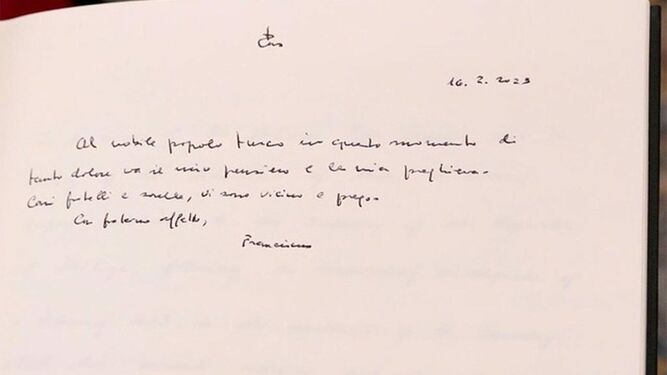 16. 2. 2023
Al nobile popolo turco in questo momento di
tanto dolore va il mio pensiero e la mia preghiera.
Cari fratelli e sorelle, vi sono vicino e prego.
Con fraterno affetto,
Francesco